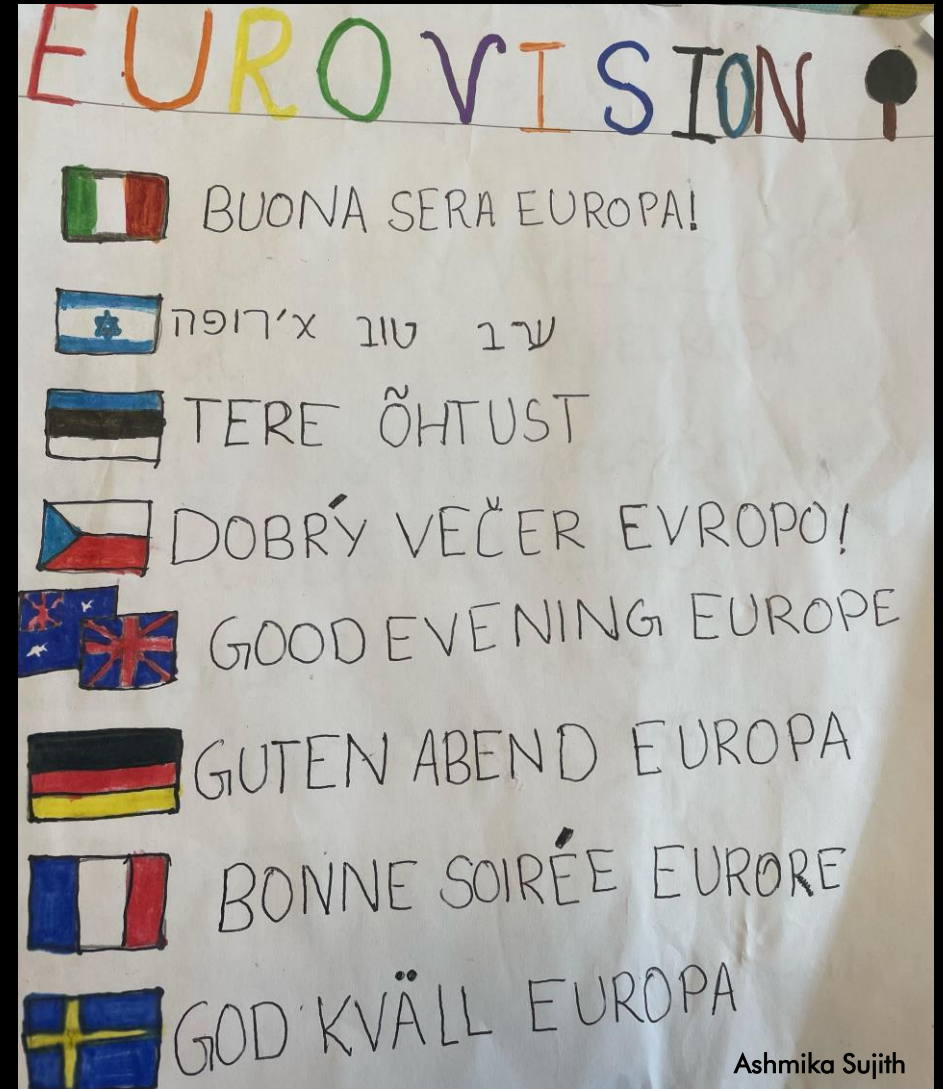 EUROVISION
BUONA SERA EUROPA!
ערב טוב אירופה
TERE ÕHTUST
DOBRÝ VEČER EVROPO!
GOOD EVENING EUROPE
GUTEN ABEND EUROPA
BONNE SOIRÉE EURORE
GOD KVÄLL EUROPA
Ashmika Sujith